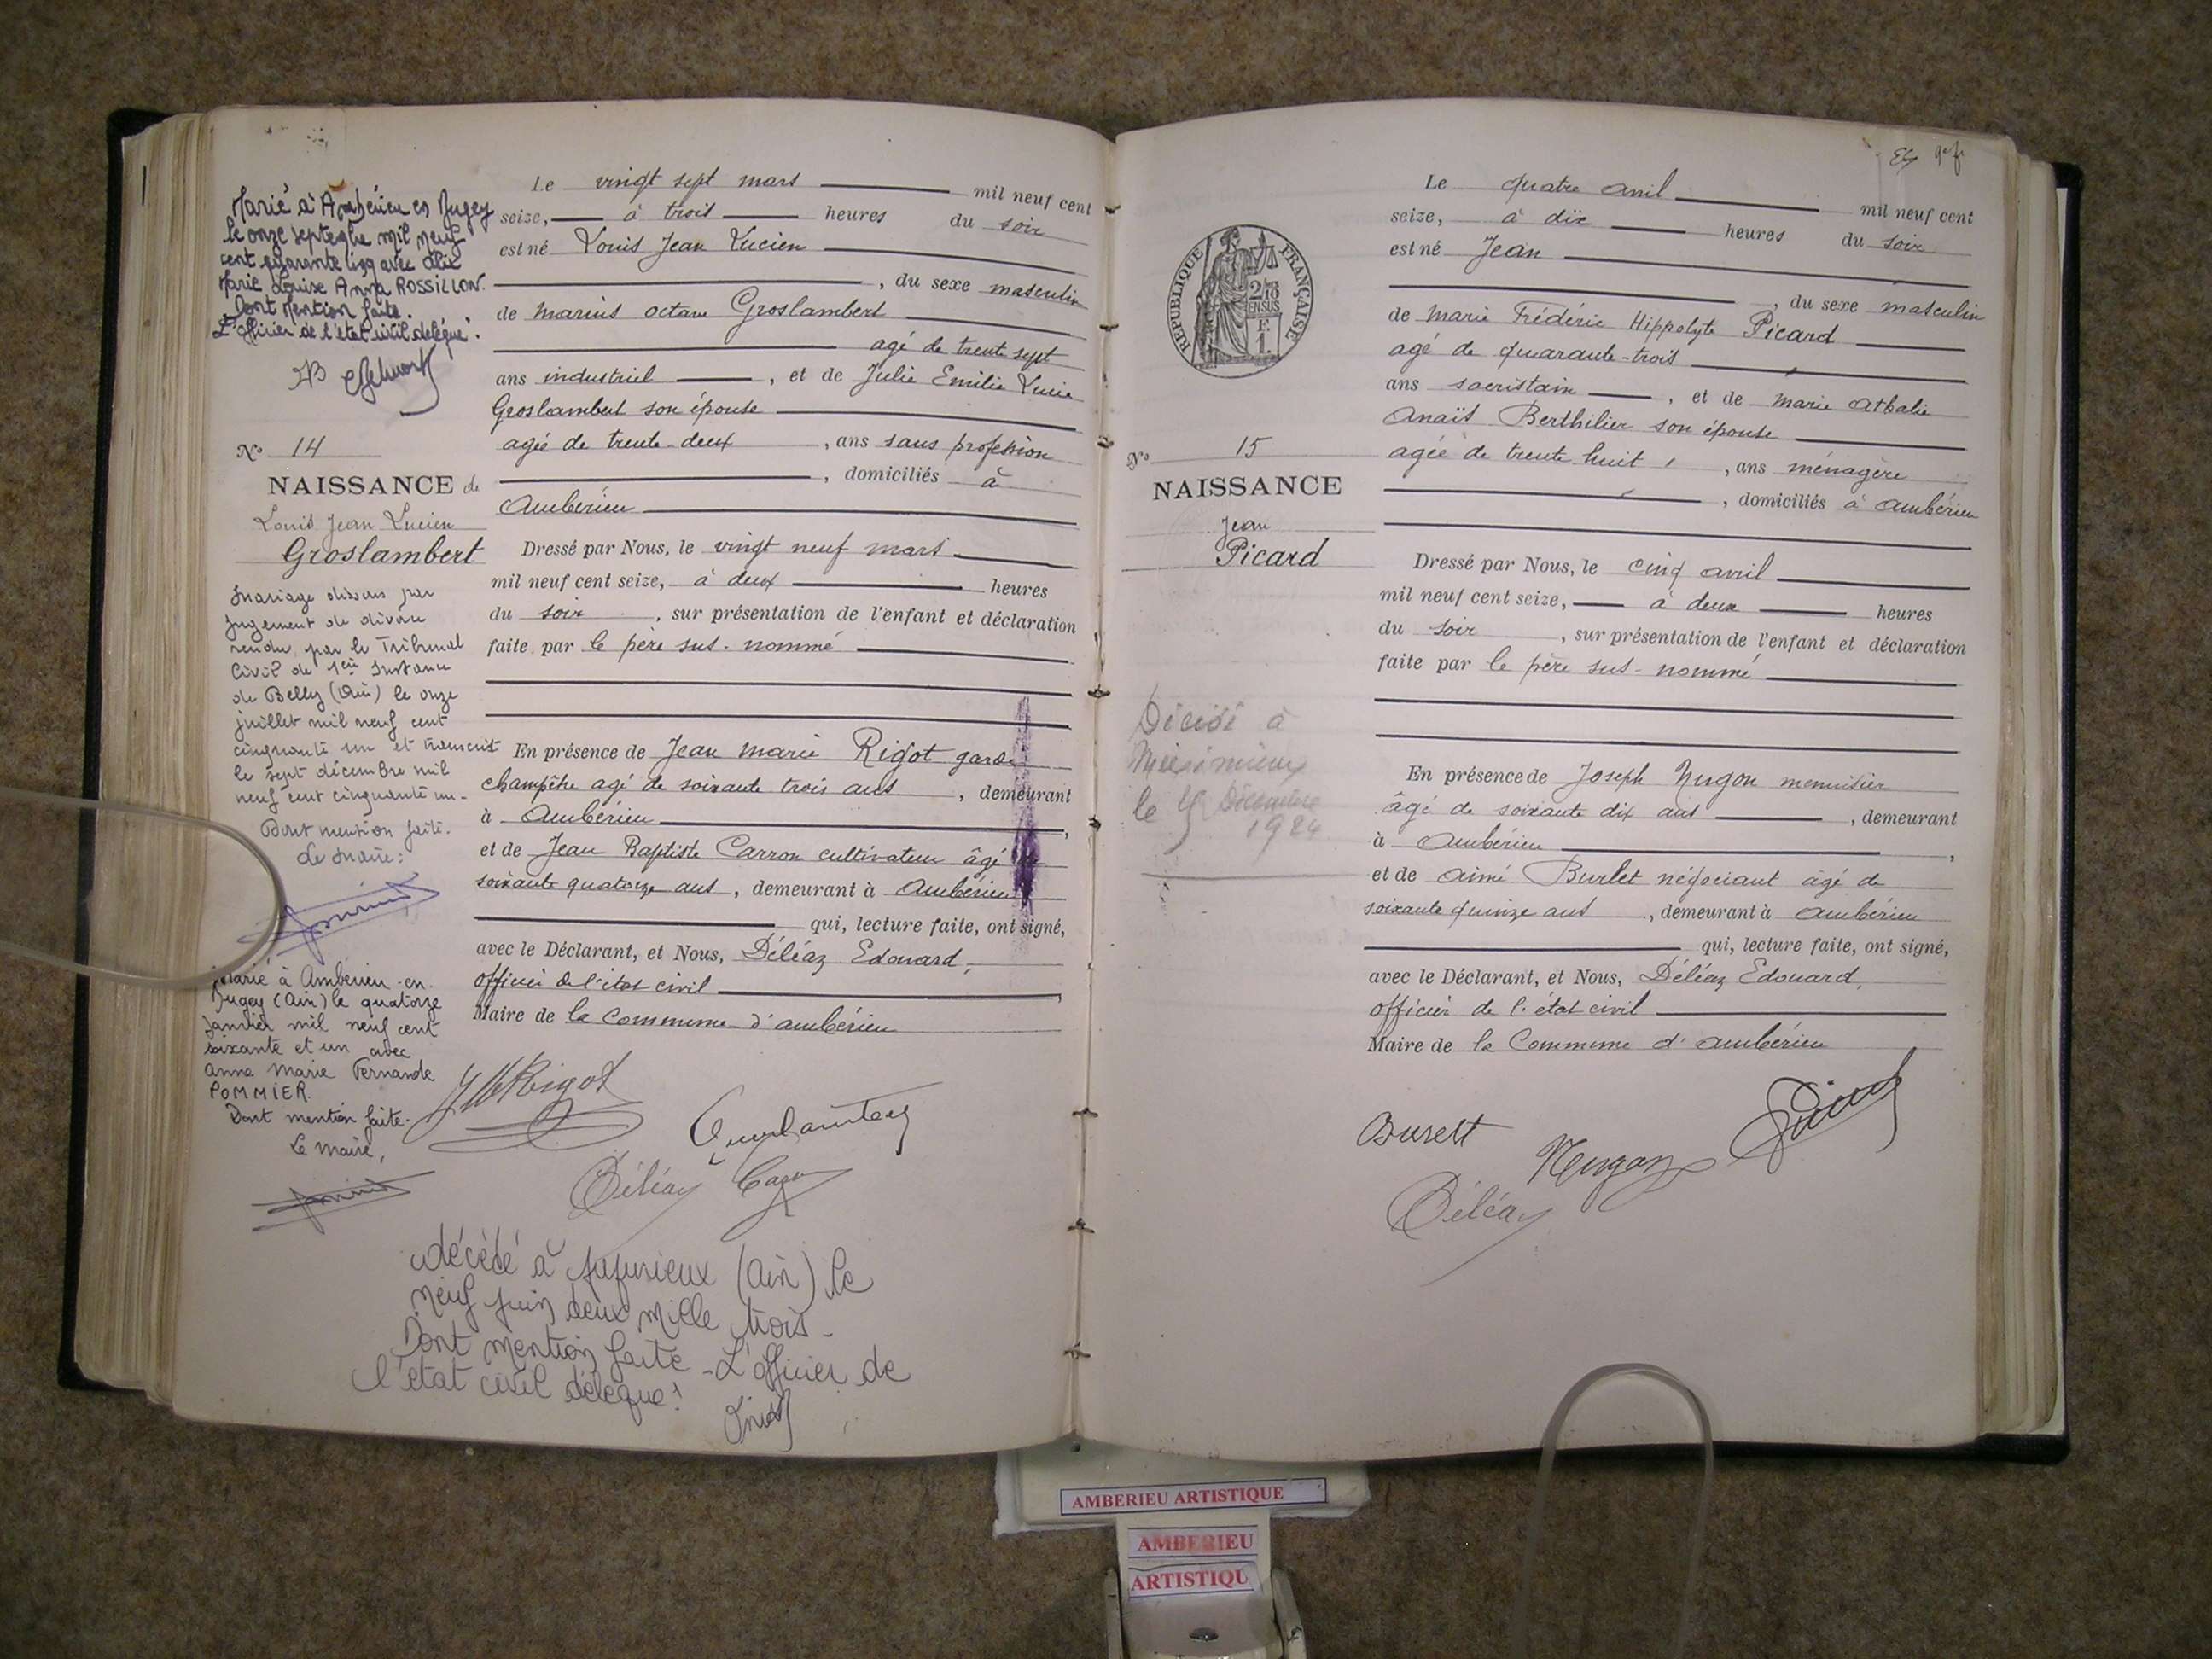 Marié à Ambérieu en Bugey
le onze septembre mil neuf
cent quarante cinq avec Alix
Marie Louise Anna ROSSILLON.
Dont Mention faite.
L'officier de l'état civil délégué.
N° 14
NAISSANCE de
Louis Jean Lucien
Groslambert
Mariage dissous par
jugement de divorce
rendu par le Tribunal
Civil de 1ère Instance
de Belley (Ain) le onze
juillet mil neuf cent
cinquante un et transcrit
le sept décembre mil
neuf cent cinquante un.
Dont mention faite.
Le Maire:
Marié à Ambérieu-en-
Bugey (Ain) le quatorze
janvier mil neuf cent
soixante et un avec
Anna Marie Fernande
POMMIER.
Dont mention faite.
Le Maire,
Le vingt sept mars mil neuf cent
seize, à trois heures du soir
est né Louis Jean Lucien
, du sexe masculin
de Marius Octave Groslambert
agé de trente sept
ans industriel , et de Julie Emilie Lucie
Groslambert son épouse
agée de trente-deux , ans sans profession
, domiciliés à
Ambérieu
Dressé par Nous, le vingt neuf mars
mil neuf cent seize, à deux heures
du soir , sur présentation de l'enfant et déclaration
faite par le père sus-nommé
En présence de Jean Marie Rigot garde
champêtre agé de soixante trois ans , demeurant
à Ambérieu ,
et de Jean Baptiste Carron cultivateur âgé de
soixante quatorze ans , demeurant à Ambérieu
qui, lecture faite, ont signé,
avec le Déclarant, et Nous, Déléaz Edouard,
officier de l'état civil
Maire de la Commune d'Ambérieu
JM Rigot
Déléaz
décédé à Jujurieux (Ain) le
neuf juin deux mille trois.
Dont mention faite - L'officier de
l'état civil délégué:
RÉPUBLIQUE FRANÇAISE
2/10 EN SUS
1 F.
N° 15
NAISSANCE
Jean
Picard
Décédé à
le Décembre
1924
Le quatre avril mil neuf cent
seize, à dix heures du soir
est né Jean
, du sexe masculin
de Marie Frédéric Hippolyte Picard
agé de quarante-trois
ans sacristain , et de Marie Athalie
Anaïs Berthilier son épouse
agée de trente huit , ans ménagère
, domiciliés à Ambérieu
Dressé par Nous, le cinq avril
mil neuf cent seize, à deux heures
du soir , sur présentation de l'enfant et déclaration
faite par le père sus-nommé
En présence de Joseph Nugon menuisier
âgé de soixante dix ans , demeurant
à Ambérieu ,
et de Aimé Burlet négociant agé de
soixante quinze ans , demeurant à Ambérieu
qui, lecture faite, ont signé,
avec le Déclarant, et Nous, Déléaz Edouard,
officier de l'état civil
Maire de la Commune d'Ambérieu
Nugon
Déléaz
AMBERIEU ARTISTIQUE
AMBERIEU
ARTISTIQU